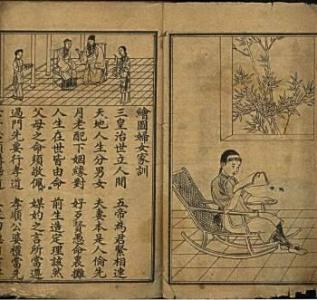 繪圖婦女家訓
三皇治世立人間 五帝為君緊相連
天地人生分男女 夫妻本是人倫先
月老配下姻緣對 好歹賢愚命裏攤
人生在世皆由命 前生造定理該然
父母之命須敬佩 媒妁之言所當遵
過門先要行孝道 孝順公婆當先